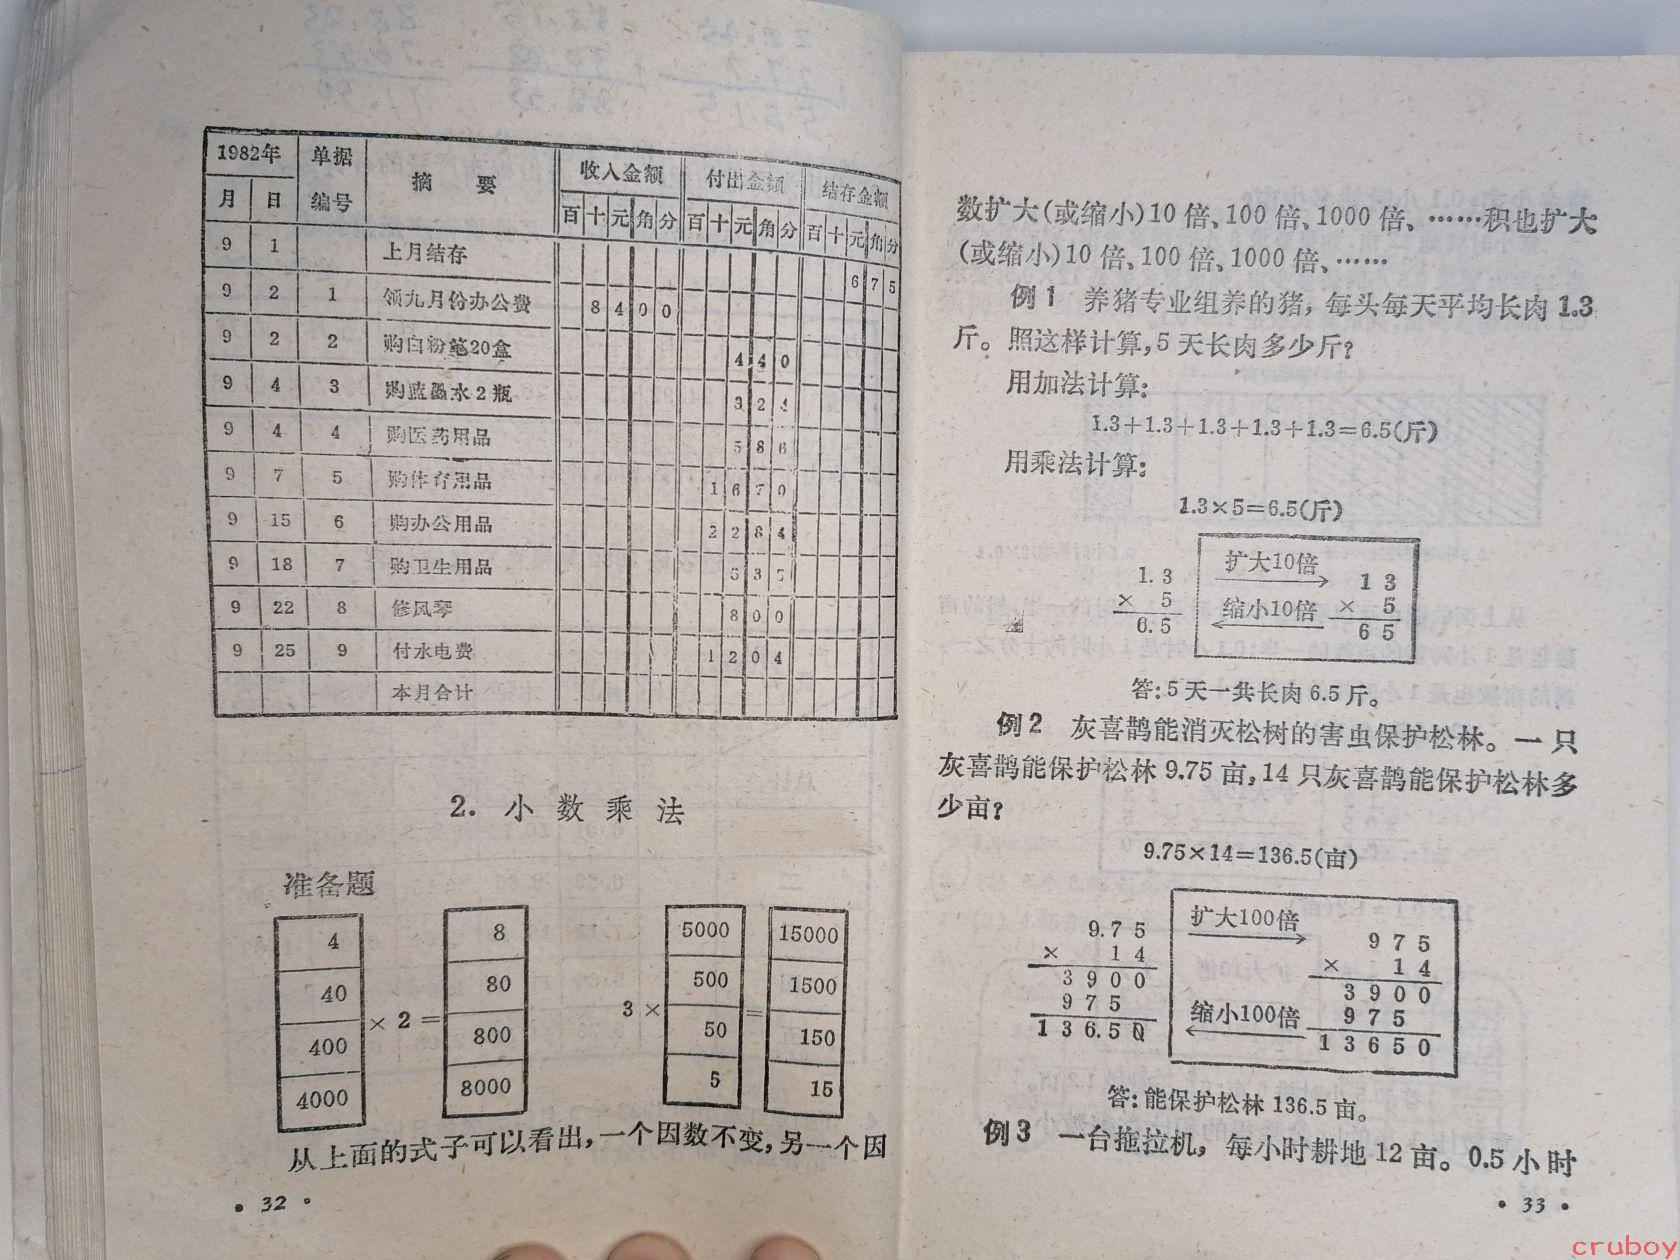 1982年 单据 摘 要 收入金额 付出金额 结存金额
月 日 编号 百 十 元 角 分 百 十 元 角 分 百 十 元 角 分
9 1 上月结存 6 7 5
9 2 1 领九月份办公费 8 4 0 0
9 2 2 购白粉笔20盒 4 4 0
9 4 3 购蓝墨水2瓶 3 2 4
9 4 4 购医药用品 5 8 6
9 7 5 购体育用品 1 6 7 0
9 15 6 购办公用品 2 2 8 4
9 18 7 购卫生用品 5 3 5
9 22 8 修风琴 8 0 0
9 25 9 付水电费 1 2 0 4
本月合计
2. 小数乘法
准备题
4 8 5000 15000
40 80 500 1500
× 2 = 3 × =
400 800 50 150
4000 8000 5 15
从上面的式子可以看出，一个因数不变，另一个因
• 32 •
数扩大(或缩小)10倍、100倍、1000倍、……积也扩大
(或缩小)10倍、100倍、1000倍、……
例1 养猪专业组养的猪，每头每天平均长肉1.3
斤。照这样计算，5天长肉多少斤？
用加法计算：
1.3+1.3+1.3+1.3+1.3=6.5(斤)
用乘法计算：
1.3×5=6.5(斤)
扩大10倍
1.3 1 3
× 5 缩小10倍 × 5
6.5 6 5
答：5天一共长肉6.5斤。
例2 灰喜鹊能消灭松树的害虫保护松林。一只
灰喜鹊能保护松林9.75亩，14只灰喜鹊能保护松林多
少亩？
9.75×14=136.5(亩)
扩大100倍
9.7 5 9 7 5
× 1 4 × 1 4
3 9 0 0 3 9 0 0
9 7 5 缩小100倍 9 7 5
1 3 6.5 0 1 3 6 5 0
答：能保护松林136.5亩。
例3 一台拖拉机，每小时耕地12亩。0.5小时
• 33 •
cruboy